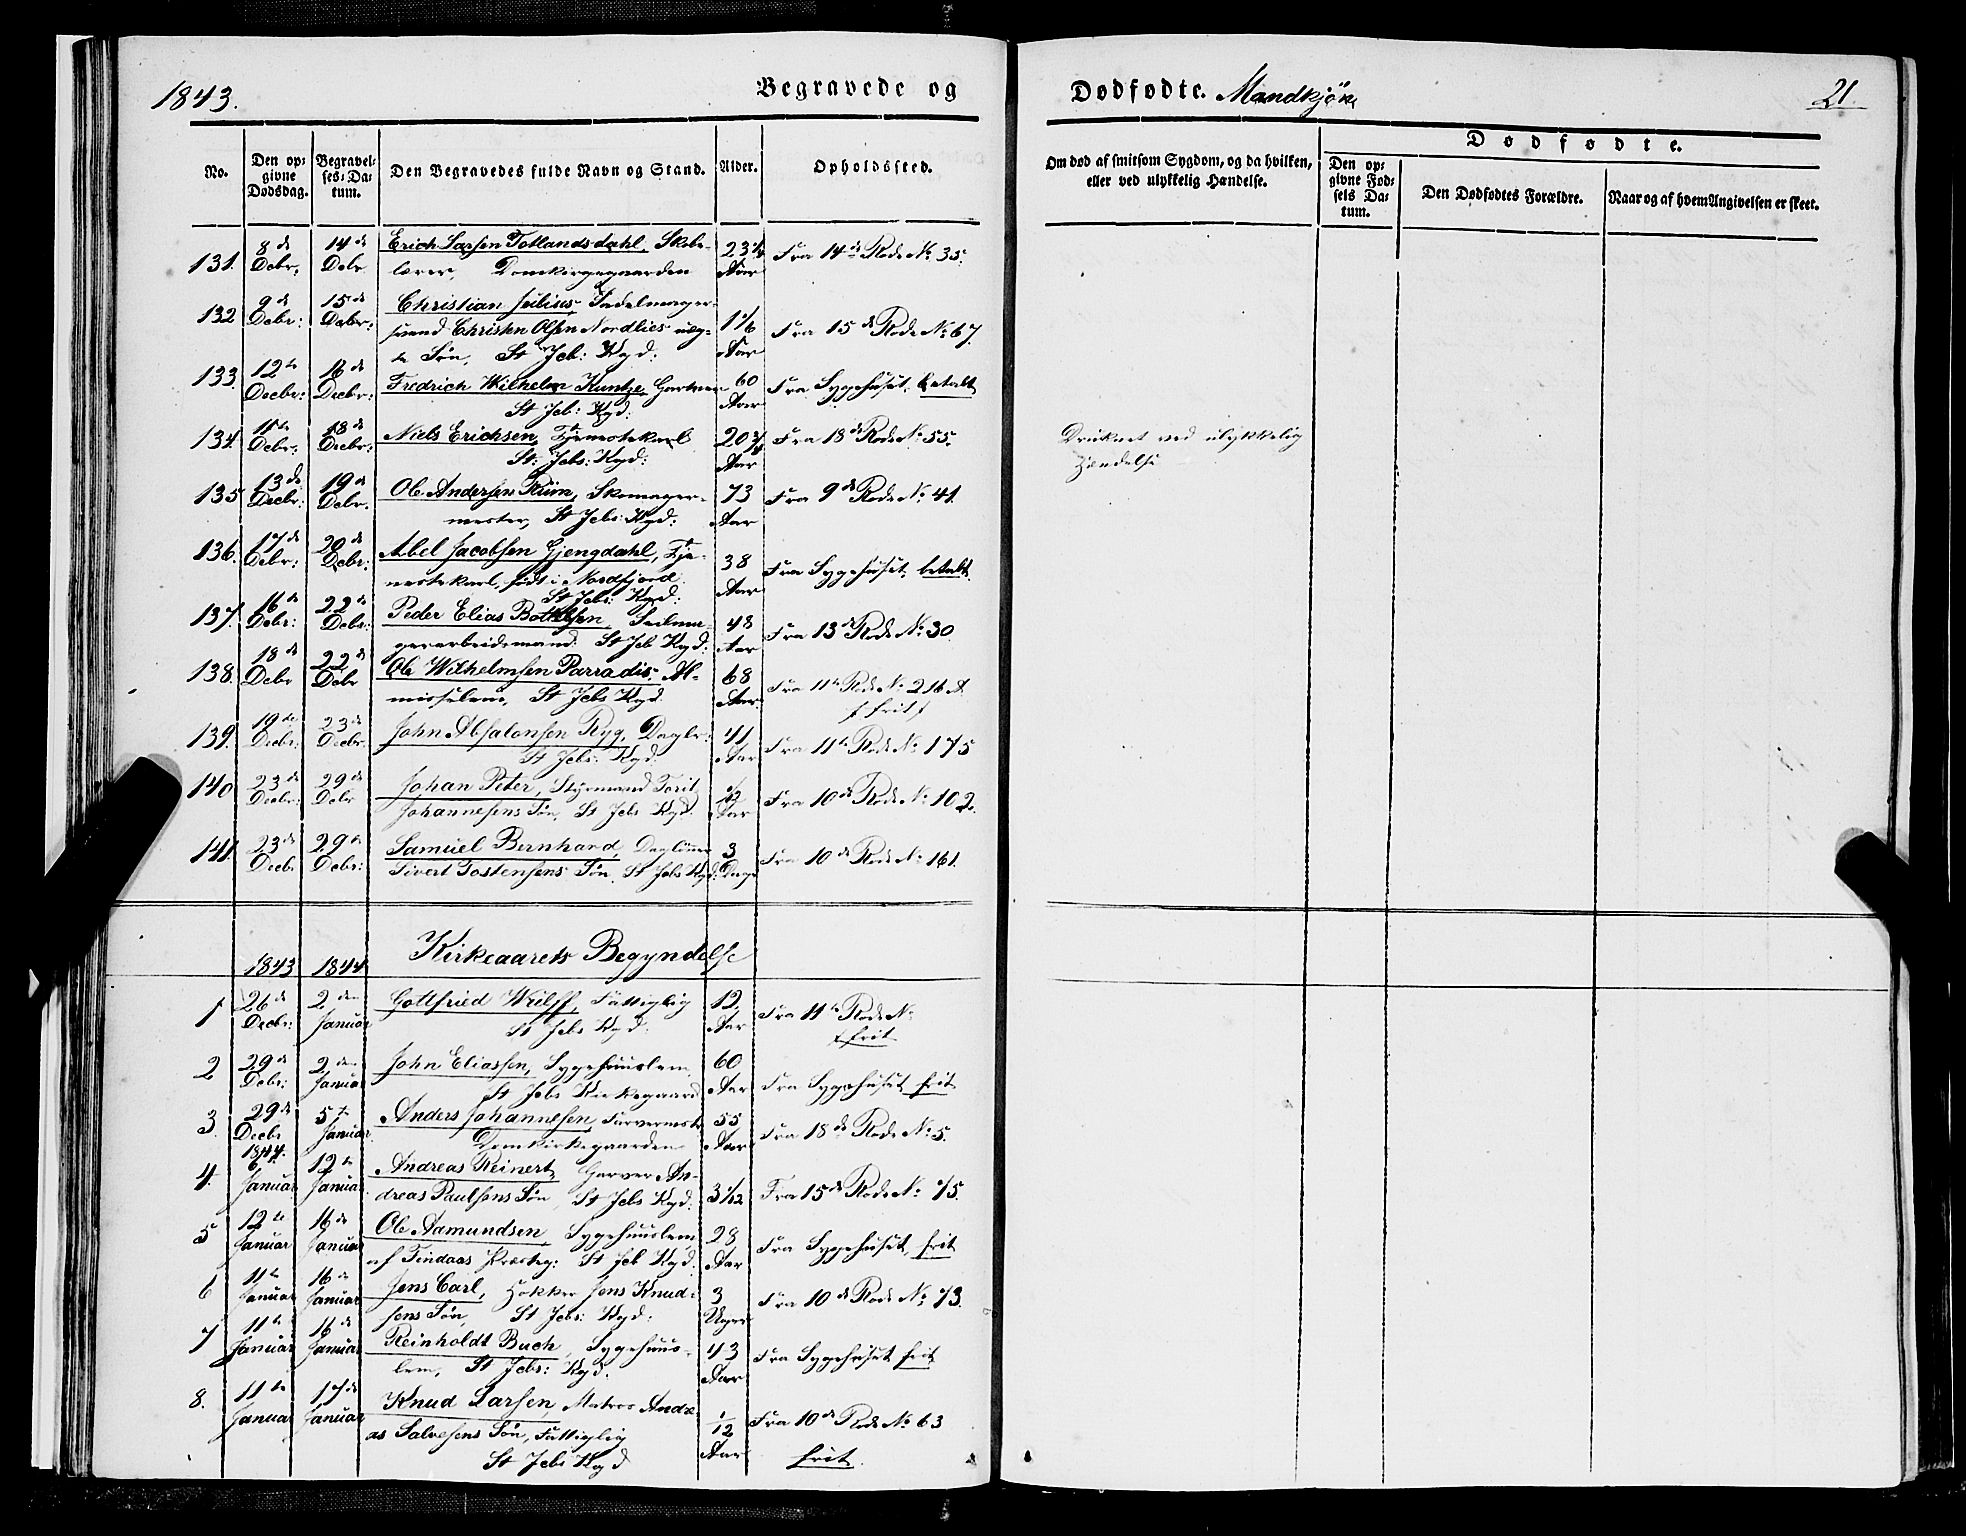 1843.
Begravede og
Dødfødte. Mandkjøn
21.
No.
Den opgivne Dødsdag.
Begravelses-Datum.
Den Begravedes fulde Navn og Stand.
Alder.
Opholdssted.
Om død af smitsom Sygdom, og da hvilken, eller ved ulykkelig Hændelse.
Dødfødte.
Den opgivne Fødsels Datum.
Den Dødfødtes Forældre.
Naar og af hvem Angivelsen er skeet.
131. 8de Decbr. 14de Decbr. Erich Larsen Totlandsdahl, Skole-
lærer, Domkirkegaarden 23 Aar Fra 14de Rode No 35.
132 9de Decbr: 15de Decbr: Christian Julius, Sadelmager-
svend Christen Olsen Nordlies
Søn, St Jcb: Kgd: 1 1/6 Aar Fra 15de Rode No 67.
133. 12te Decbr: 16de Decbr: Fredrich Wilhelm Kuntze, Gartner
St Jcb: Kgd: 60 Aar Fra Sygehuset, betalt
134. 11te Decbr: 18de Decbr: Niels Erichsen, Tjenestekarl
St: Jcbs: Kgd: 20 Aar Fra 18de Rode No 55. Druknet ved ulykkelig
Hændelse
135 13de Decbr: 19de Decbr. Ole Andersen Riim, Skomager-
mester, St Jcbs Kgd: 73 Aar Fra 9de Rode No 41.
136. 17de Decbr: 20de Decbr: Abel Jacobsen Gjengdahl, Tje-
nestekarl, født i Nordfjord
St Jcbs: Kgd: 38 Aar Fra Sygehuset, betalt.
137. 16de Decbr: 22de Decbr: Peder Elias Bottelsen, Seilma-
gerarbeidsmand. St Jcb Kgd: 48 Aar Fra 13de Rode No 30.
138. 18de Decbr 22de Decbr Ole Wilhelmsen Parradis, Al-
misselem, St Jcbs Kgd 68 Aar. Fra 11te Rode No 216 A.
frit
139. 19de Decbr: 23de Decbr. John Absalonsen Ryg, Daglr:
St Jcbs: Kgd: 41 Aar Fra 11te Rode No 175
140 23de Decbr: 29de Decbr Johan Peter, Styrmand Torit
Johannesens Søn, St Jcbs Kgd. Aar Fra 10de Rode No 102.
141. 23de Decbr 29de Decbr: Samuel Bernhard, Daglønner
Sivert Tostensens Søn. St Jcbs Kgd: 3 Dage Fra 10de Rode No 161.
1843 1844 Kirkeaarets Begyndelse
1 26de Decbr: 2den Januar Gottfried Wulff, Fattiglig
St Jcbs Kgd: 12 Aar Fra 11te Rode No
frit
2 29de Decbr: 2den Januar John Eliassen, Sygehuuslem,
St Jcbs Kirkegaard 60 Aar Fra Sygehuset frit
3. 29de Decbr 5te Januar. Anders Johannesen, Farvermst
Domkirkegaarden 55 Aar Fra 18de Rode No 5.
1844.
4. 6te Januar 12te Januar Andreas Reinert, Garver An-
dreas Paulsens Søn, St Jcbs Kgd: 3 1/12 Fra 15de Rode No 75.
5 12te Januar 16de Januar Ole Aamundsen, Sygehuuslem
af Findaas Præsteg: St Jcb Kgd. 28 Aar Fra Sygehuset, frit
6 11te Januar 16de Januar Jens Carl, Høkker Jens Knud-
sens Søn, St Jcbs: Kgd: 3 Uger Fra 10de Rode No 73.
7 11te Januar 16de Januar Reinholdt Buch, Sygehuus-
lem, St Jcbs: Kgd. 43 Aar Fra Sygehuset frit
8. 11te Januar 17de Januar Knud Larsen, Matros Andre-
as Salvesens Søn, Fattiglig
St Jcbs Kgd 1/12 Aar Fra 10de Rode No 63
frit.